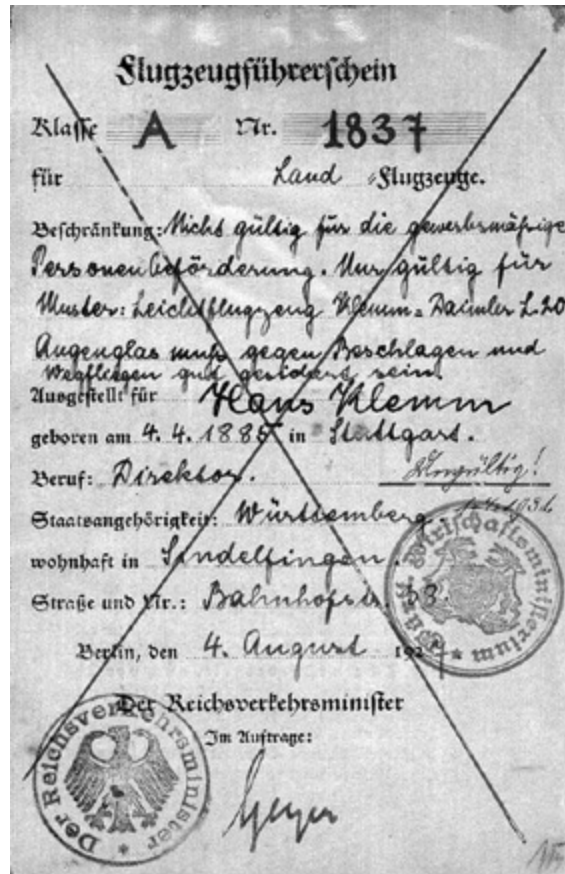 Flugzeugführerschein
Klasse A Nr. 1837
für Land -Flugzeuge.
Beschränkung: Nicht gültig für die gewerbsmäßige
Personenbeförderung. Nur gültig für
Muster: Leichtflugzeug Klemm-Daimler L.20
Augenglas muß gegen Beschlagen und
Wegfliegen gut gesichert sein.
Ausgestellt für Hans Klemm
geboren am 4. 4. 1885 in Stuttgart.
Beruf: Direktor.
Ungültig!
Staatsangehörigkeit: Württemberg.
wohnhaft in Sindelfingen.
Straße und Nr.: Bahnhofstr.
Berlin, den 4. August 192
Wirtschaftsministerium
Der Reichsverkehrsminister
Im Auftrage:
Der Reichsverkehrsminister